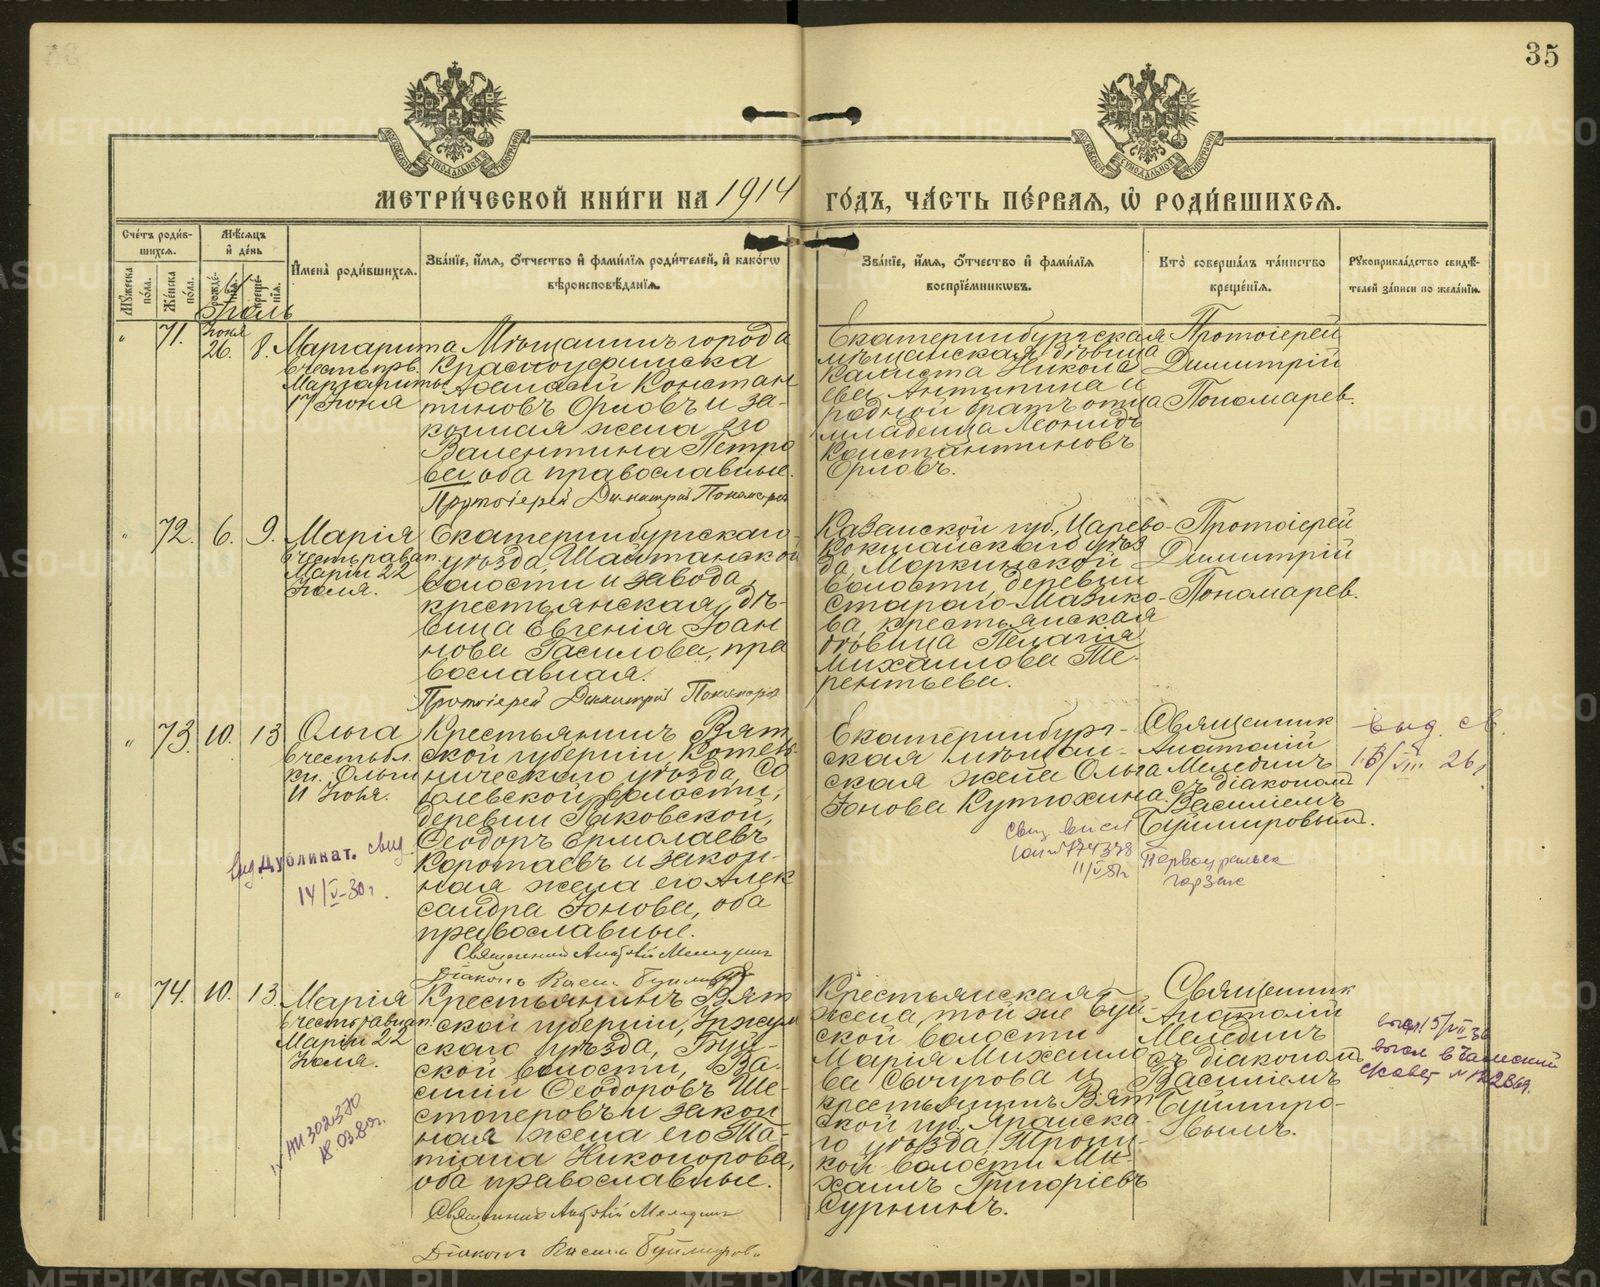 35
МЕТРИ́ЧЕСКОЙ КНИ́ГИ НА 1914 ГО́ДЪ, ЧА́СТЬ ПЕ́РВАЯ, Ѡ҆ РОДИ́ВШИХСЯ.
Сче́тъ роди́в-
шихся.
Мѣ́сяцъ
и҆ де́нь
Мꙋ́жеска
по́ла.
Же́нска
по́ла.
рожде́-
нїя.
креще́-
нїя.
И҆мена̀ роди́вшихся.
Зва́нїе, и҆́мя, ѻ҆́тчество и҆ фами́лїя роди́телей, и҆ како́гѡ
вѣроисповѣ́данїя.
Зва́нїе, и҆́мя, ѻ҆́тчество и҆ фами́лїя
воспрїе́мникѡвъ.
Кто̀ соверша́лъ та́инство
креще́нїя.
Рꙋкоприкла́дство свидѣ́-
телей за́писи по жела́нїю.
Іюль
71.
Іюня
26.
8.
Маргарита
въ честь пр.
Маргариты
17 Іюля
Мѣщанинъ города
Красноуфимска
Алексѣй Констан
тиновъ Орловъ и за-
конная жена его
Валентина Петро
ва, оба православные.
Протоіерей Димитрій Пономарев
Екатеринбургская
мѣщанская дѣвица
Калиста Никола
ева Антипина и
родной братъ отца
младенца Леонидъ
Константиновъ
Орловъ.
Протоіерей
Димитрій
Пономарев.
72.
6.
9.
Марія
въ честь равап.
Маріи 22
Іюля.
Екатеринбургскаго
уѣзда, Шайтанской
волости и завода,
крестьянская дѣ-
вица Евгенія Іоан
нова Гасилова, пра
вославная.
Протоіерей Димитрій Пономарев
Казанской губ., Царево-
кокшайскаго уѣз
да, Моркинской
волости, деревни
Стараго-Мазико-
ва крестьянская
дѣвица Пелагія
Михаилова Те-
рентьева.
Протоіерей
Димитрій
Пономарев.
73.
10.
13
Ольга
въ честь бл.
кн. Ольги
11 Іюля.
Крестьянинъ Вят
ской губерніи, Котель
ническаго уѣзда, Со
деревни Раковской,
Ѳеодоръ Ермолаевъ
Коротаевъ и закон-
ная жена его Алек
сандра Іонова, оба
православные.
Священникъ Анатолій Мелединъ
Діаконъ Васил Буймировъ
Екатеринбург-
ская мѣщан-
ская жена Ольга
Іонова Кутюхина.
Священник
Анатолій
Мелединъ
съ діакономъ
Василіемъ
Буймировымъ.
выд. св.
26 г
выд. Дубликат. свид.
14/V-30 г.
11/V 51г
Первоуральск
горзагс
74.
10.
13.
Марія
въ честь равноап.
Маріи 22
Іюля.
Крестьянинъ Вят
ской губерніи, Уржум
скаго уѣзда, Буй-
ской волости, Ва-
силій Ѳеодоровъ Ше-
стоперовъ и закон
ная жена его Та-
тіана Никонорова,
оба православные.
Священникъ Анатолій Мелединъ
Діаконъ Василій Буймировъ
Крестьянская
жена, той же Буй-
ской волости
Марія Михаило
ва Сычурова и
крестьянинъ Вят
ской губ. Яранска
го уѣзда,
кой волости Ми-
хаилъ Григоріевъ
Сурнинъ.
Священник
Анатолій
Мелединъ
съ діакономъ
Василіемъ
Буймиро-
вымъ.
АИ 302370
18.03.80г.